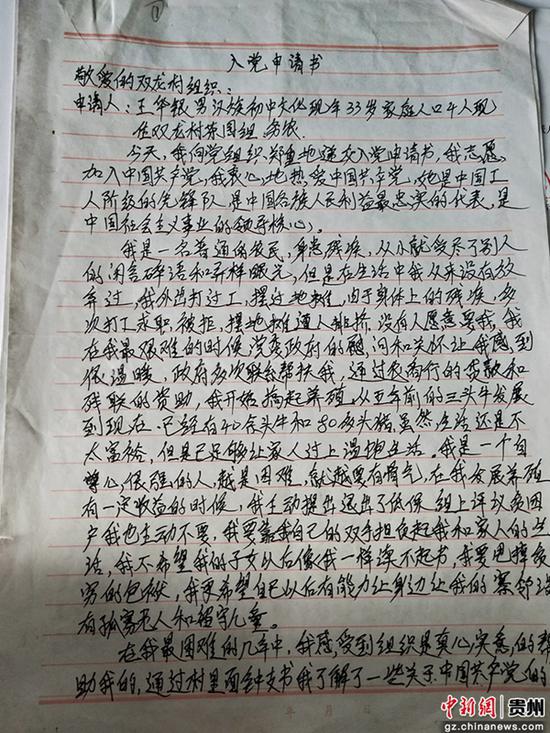 入党申请书
敬爱的双龙村组织:
申请人:王华银 男 汉族 初中文化 现年33岁 家庭人口4人 现
在双龙村 组 务农.
今天,我向党组织郑重地递交入党申请书,我志愿
加入中国共产党,我衷心地热爱中国共产党,她是中国工
人阶级的先锋队 是中国各族人民利益最忠实的代表,是
中国社会主义事业的领导核心。
我是一名普通的农民,身患残疾,从小就受尽了别人
的闲言碎语和异样眼光,但是在生活中我从来没有放
弃过,我外出打过工,摆过地摊,由于身体上的残疾,多
次打工求职被拒,摆地摊遭人排挤,没有人愿意要我,我
在我最艰难的时候 党委政府的慰问和关怀让我感到
很温暖,政府多次联系帮扶我,通过农商行的贷款和
残联的资助,我开始搞起养殖,从五年前的三头牛发展
到现在已经有40余头牛和80多头猪,虽然生活还是不
太富裕,但是已足够让家人过上温饱生活。我是一个自
尊心很强的人,越是困难,就越要有骨气,在我发展养殖
有一定收益的时候,我主动提出退出了低保,组上评议贫困
户我也主动不要,我要靠我自己的双手担负起我和家人的生
活,我不希望我的子女以后像我一样读不起书,我要甩掉贫
穷的包袱,我更希望自己以后有能力让身边让我的寨邻没
有孤寡老人和留守儿童。
在我最困难的几年中,我感受到组织是真心实意的帮
助我的,通过村里面钟支书我了解了一些关于中国共产党的
年 月 日
中新网 贵州
gz.chinanews.com